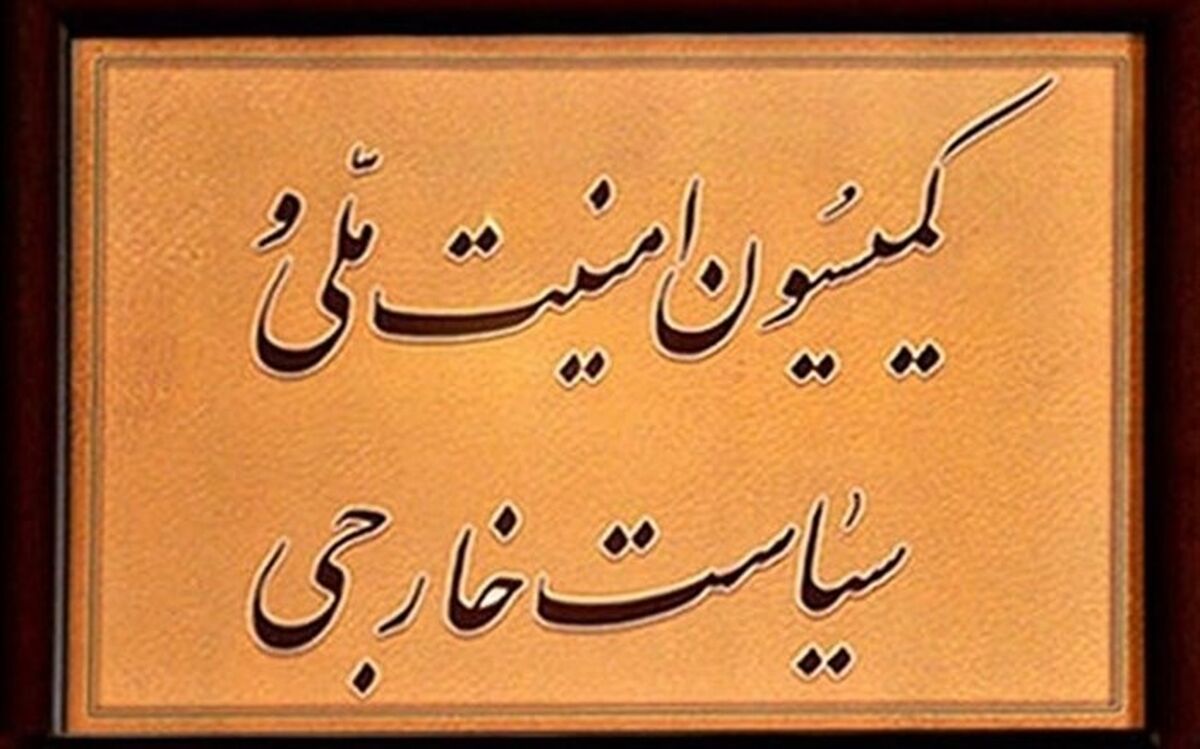 کمیسُیون امنیت ملّی و
سیاست خارجی